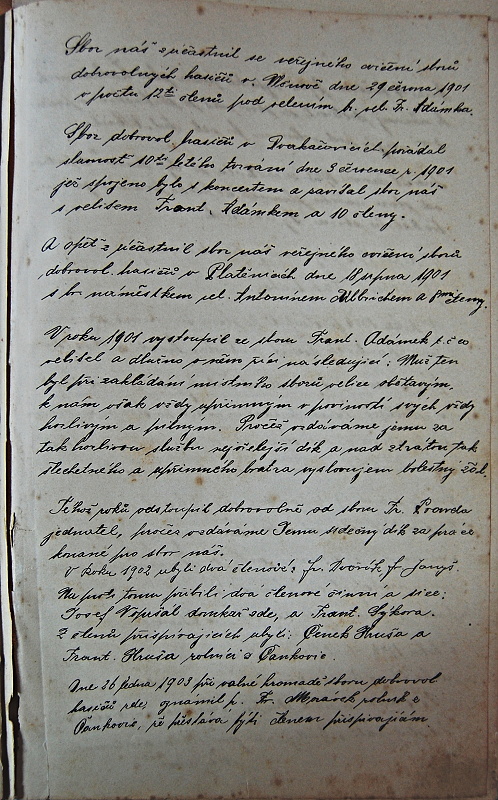 Sbor náš zúčastnil se veřejného cvičení sborů
dobrovolných hasičů v dne 29 června 1901
v počtu 12ti členů pod velením br. vel. Fr. Adámka.
Sbor dobrovol. hasičů v Dvakačovicích pořádal
slavnost 10ti letého trvání dne 3 července r. 1901
jež spojeno bylo s koncertem a navštívil sbor náš
s velitelem Frant. Adámkem a 10 členy.
A opět zúčastnil sbor náš veřejného cvičení sborů
dobrovol. hasičů v Platěnicích dne 18 srpna 1901
s br. náměstkem vel. Antonínem Ulbrichem a 8mi členy.
V roku 1901 vystoupil ze sboru Frant. Adámek t. č. co
velitel a dlužno o něm říci následující: Muž ten
byl při zakládání místního sborů velice obětavým,
k nám však vždy upřímným v povinosti svých vždy
horlivým a pilným. Pročež vzdáváme jemu za
tak horlivou službu nejvřelejší dík a nad ztrátou tak
šlechetného a upřímného bratra vyslovujem bolestný žal.
Téhož roků odstoupil dobrovolně od sboru Fr. Pravda
jednatel, pročež vzdáváme Jemu srdečný dík za práce
konané pro sbor náš.
V Roku 1902 ubyli dva členové: Fr. Dvořák, Fr. Janyš.
Na proti tomu přibili dva členové činní a sice:
Josef Vopršal domkař zde, a Frant. Sýkora.
Z členů přispívajících ubyli: Čeněk Hruša a
Frant. Hruša rolníci z Čankovic.
Dne 26 ledna 1903 při valné hromadě sboru dobrovol.
hasičů zde, oznámil p. Fr. Mrázek rolník z
Čankovic, že přestává býti členem přispívajícím.